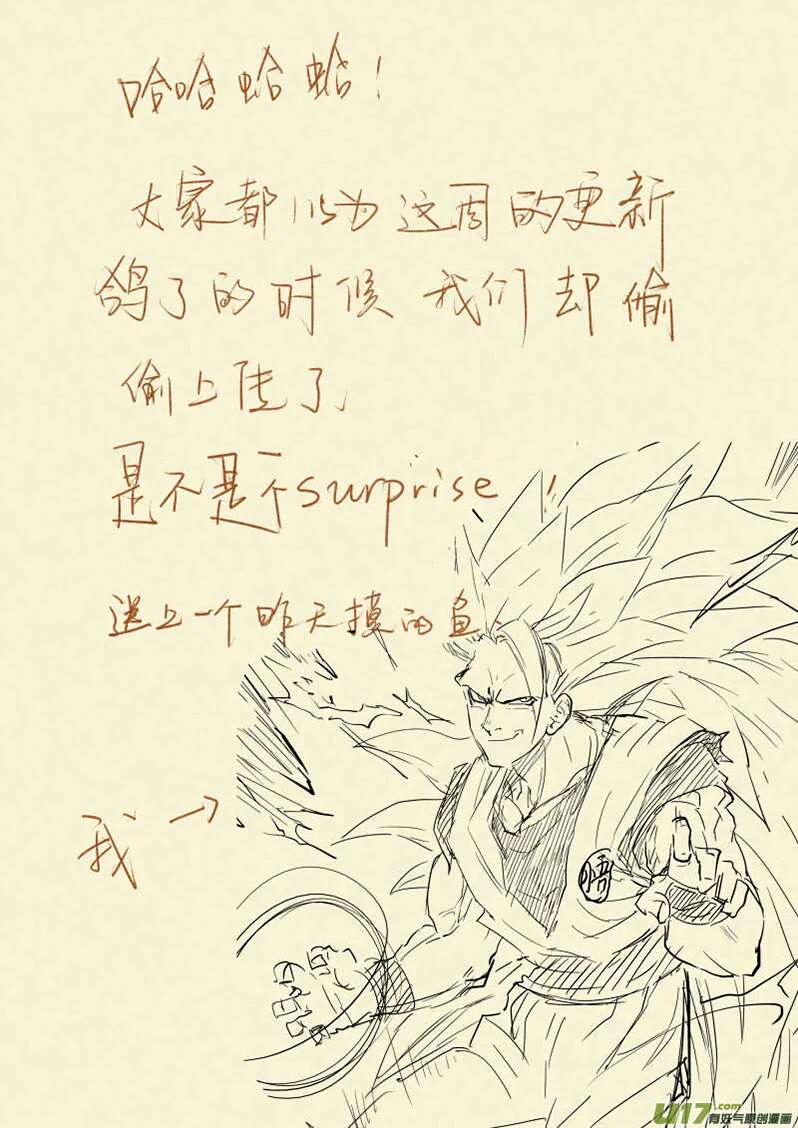 哈哈蛤蛤！
大家都以为这周的更新
鸽了的时候 我们却偷
偷上传了
是不是个surprise！
送上一个昨天摸的鱼、
我→
悟
U17.com
有妖气原创漫画